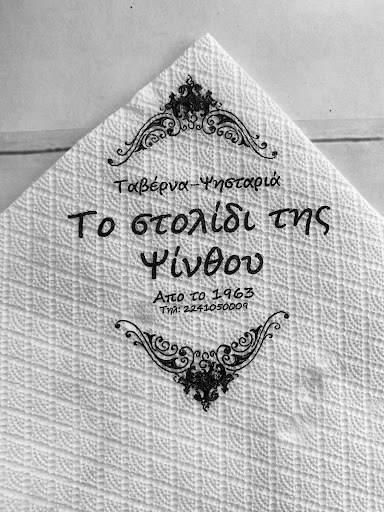 Ταβέρνα-Ψησταριά
Το στολίδι της
Ψίνθου
Απο το 1963
Τηλ: 2241050009